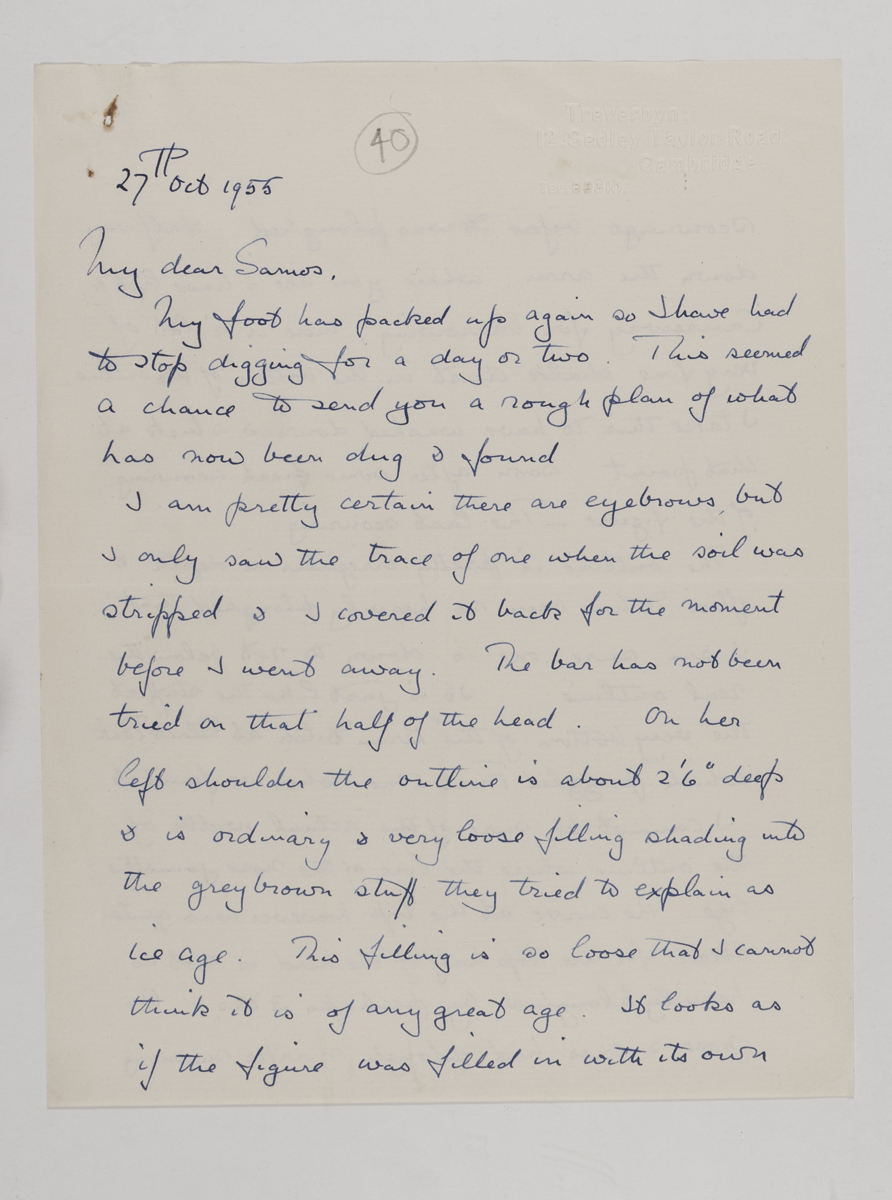 40
Trevarbyn,
12 Sedley Taylor Road
Cambridge
27TH Oct 1955
My dear Samos,
My foot has packed up again so I have had
to stop digging for a day or two. This seemed
a chance to send you a rough plan of what
has now been dug & found
I am pretty certain there are eyebrows, but
I only saw the trace of one when the soil was
stripped & I covered it back for the moment
before I went away. The bar has not been
tried on that half of the head. On her
left shoulder the outline is about 2'6" deep
& is ordinary & very loose filling shading into
the greybrown stuff they tried to explain as
ice age. This filling is so loose that I cannot
think it is of any great age. It looks as
if the figure was filled in with its own